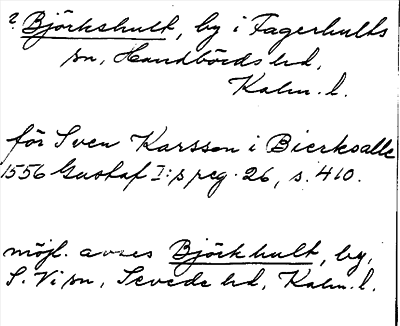 ? Björkshult, by i Fagerhults
sn, Handbörds hd,
Kalm. l.
för Sven Karsson i Bierksalle
1556 Gustaf I:s reg. 26, s. 410.
möjl. avses Björkhult, by,
S. Vi sn, Sevede hd, Kalm. l.